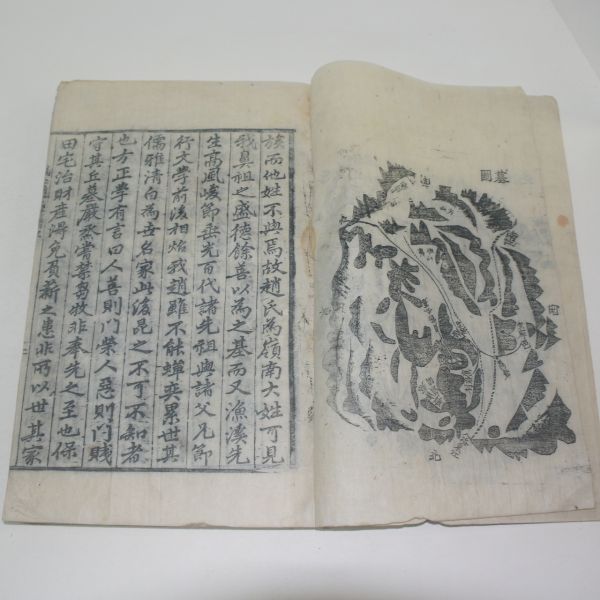 族而他姓不與焉故趙氏為嶺南大姓可見
我鼻祖之盛德餘善以為之基而又漁溪先
生高風峻節垂光百代諸先祖與諸父兄節
行文學前後相焰我趙雖不能蟬奕累世其
儒雅清白為世名家此後昆之不可不知者
也方正學有言曰人善則門榮人惡則門賤
守其丘墓嚴烝嘗禁芻牧非奉先之至也保
田宅治財產淂免負薪之患非所以世其家
墓
圖
北